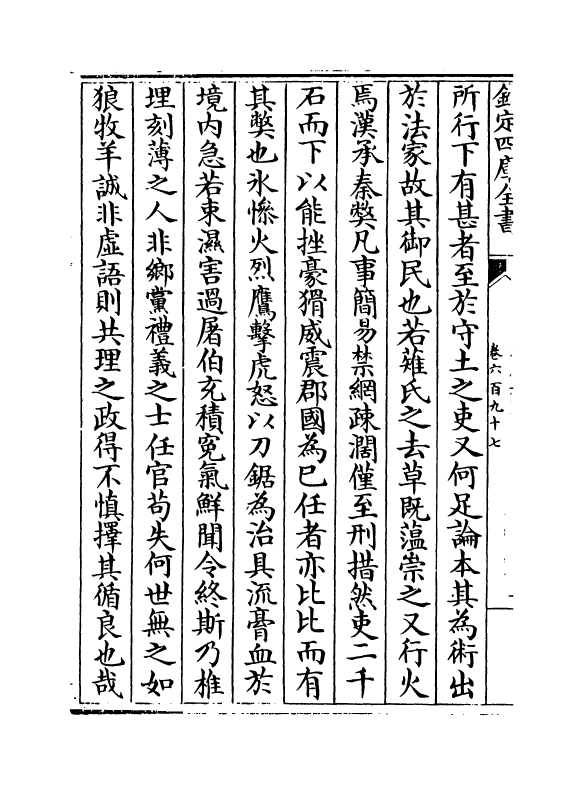 欽定四庫全書
卷六百九十七
所行下有甚者至於守土之吏又何足論本其為術出
於法家故其御民也若薙氏之去草既薀崇之又行火
焉漢承秦弊凡事簡易禁網疎濶僅至刑措然吏二千
石而下以能挫豪猾威震郡國為已任者亦比比而有
其弊也氷慘火烈鷹擊虎怒以刀鋸為治具流膏血於
境内急若束濕害過屠伯充積寃氣鮮聞令終斯乃椎
埋刻薄之人非鄉黨禮義之士任官苟失何世無之如
狼牧羊誠非虛語則共理之政得不慎擇其循良也哉